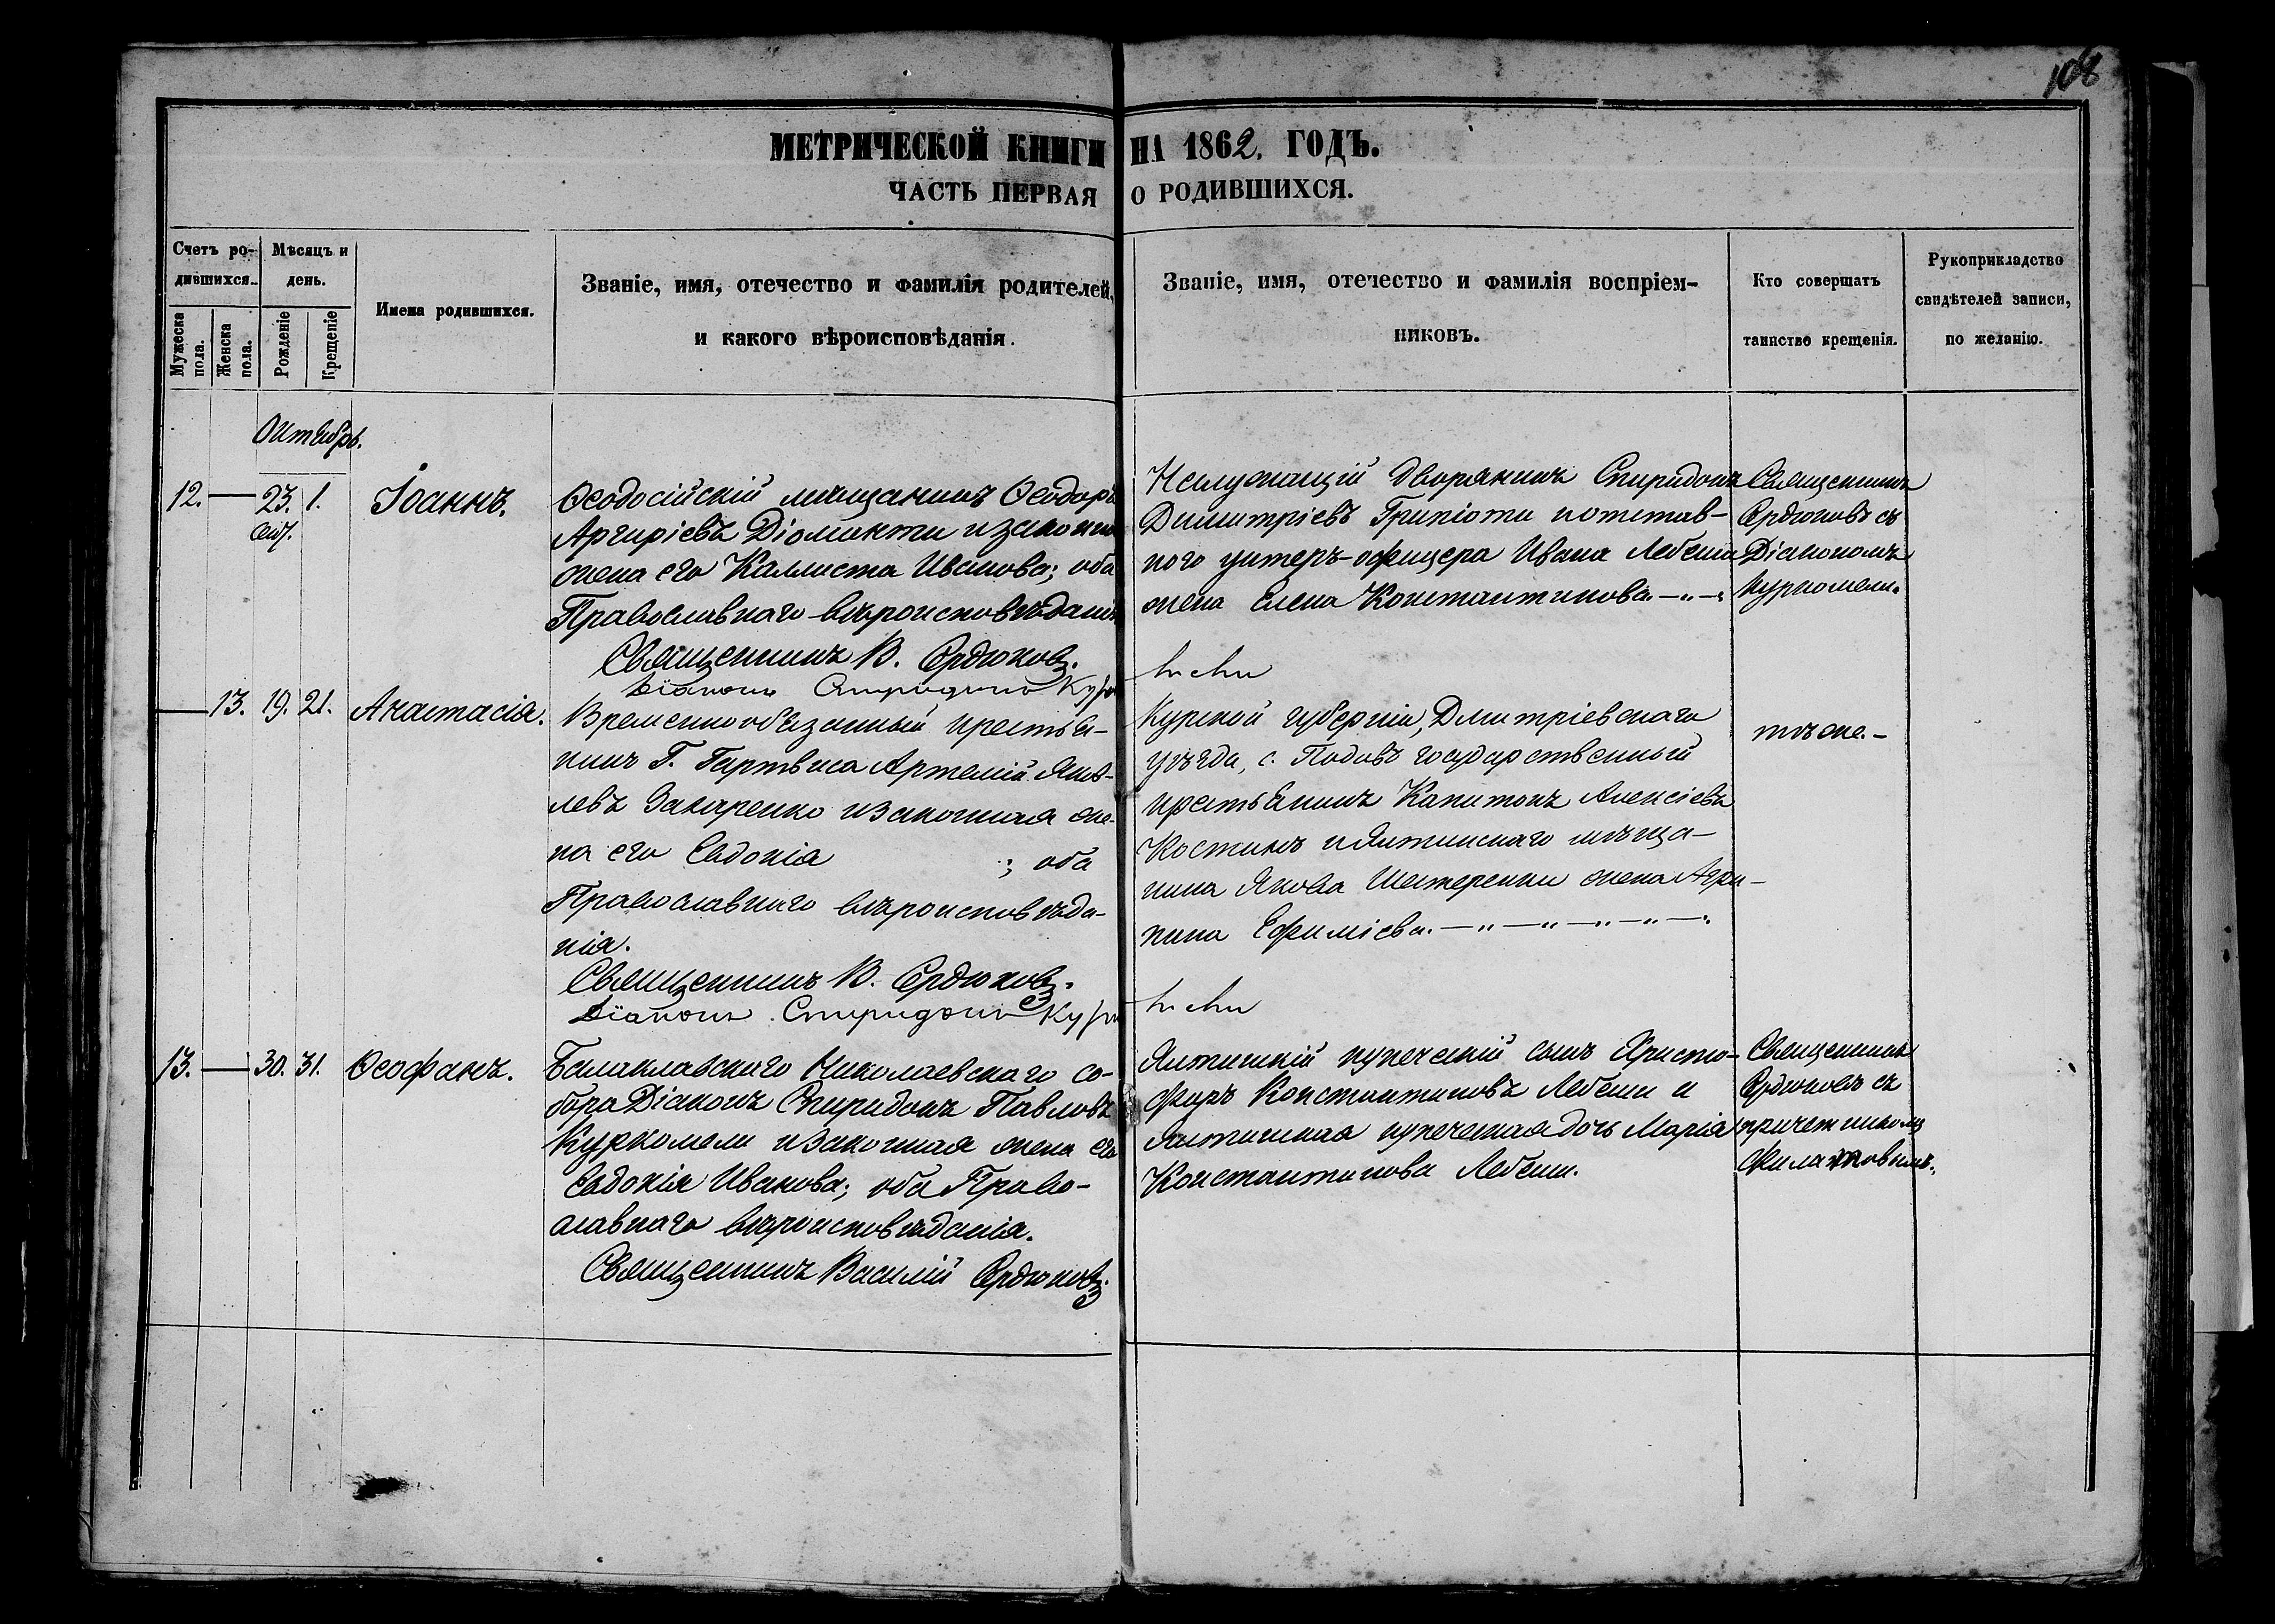 108
МЕТРИЧЕСКОЙ КНИГИ НА 1862. ГОДЪ.
ЧАСТЬ ПЕРВАЯ О РОДИВШИХСЯ.
Счетъ родившихся.
Мужеска пола.
Женска пола.
Мѣсяцъ и день.
Рожденіе
Крещеніе
Имена родившихся.
Званіе, имя, отечество и фамилія родителей,
и какого вѣроисповѣданія.
Званіе, имя, отечество и фамилія воспріем-
никовъ.
Кто совершатъ
таинство крещенія.
Рукоприкладство
свидѣтелей записи,
по желанію.
Октябрь.
12. — 23. 1. Іоаннъ.
Сен.
Ѳеодосійскій мѣщанинъ Ѳеодоръ
Аргиріевъ Діоманти и законная
жена его Каллиста Иванова; оба
Православнаго вѣроисповѣданія
Священникъ В. Сердюковъ.
Діаконъ Спиридонъ Кур
Неслужащій дворянинъ Спиридонъ
Димитріевъ Грипіоти и отстав-
ного унтеръ-офицера Ивана Лебеши
жена Елена Константинова. —„—„
Священникъ
Сердюковъ съ
Діакономъ
Куркомели.
— 13. 19. 21. Анастасія.
Временнообязанный крестья-
нинъ Г. Гартвиса Артемій Яков-
левъ Захаренко и законная же-
на его Евдокія ; оба
Православнаго вѣроисповѣда-
нія.
Священникъ В. Сердюковъ.
Діаконъ Спиридонъ Кур
Курской губерніи, Дмитріевскаго
уѣзда, с. Подовъ государственный
крестьянинъ Капитонъ Алексіевъ
Костинъ и Ялтинскаго мѣща-
нина Якова Шетеренки жена Агри-
пина Ефиміева. —„—„—„—„—„
тѣ же. —
13. — 30. 31. Ѳеофанъ.
Балаклавскаго Николаевскаго со-
бора Діаконъ Спиридонъ Павловъ
Куркомели и законная жена его
Евдокія Иванова; оба Право-
славнаго вѣроисповѣданія.
Священникъ Василій Сердюковъ.
Ялтинскій купеческій сынъ Христо-
форъ Константиновъ Лебеши и
Ялтинская купеческая дочь Марія
Константинова Лебеши.
Священникъ
Сердюковъ съ
причетникомъ
Филатовымъ.